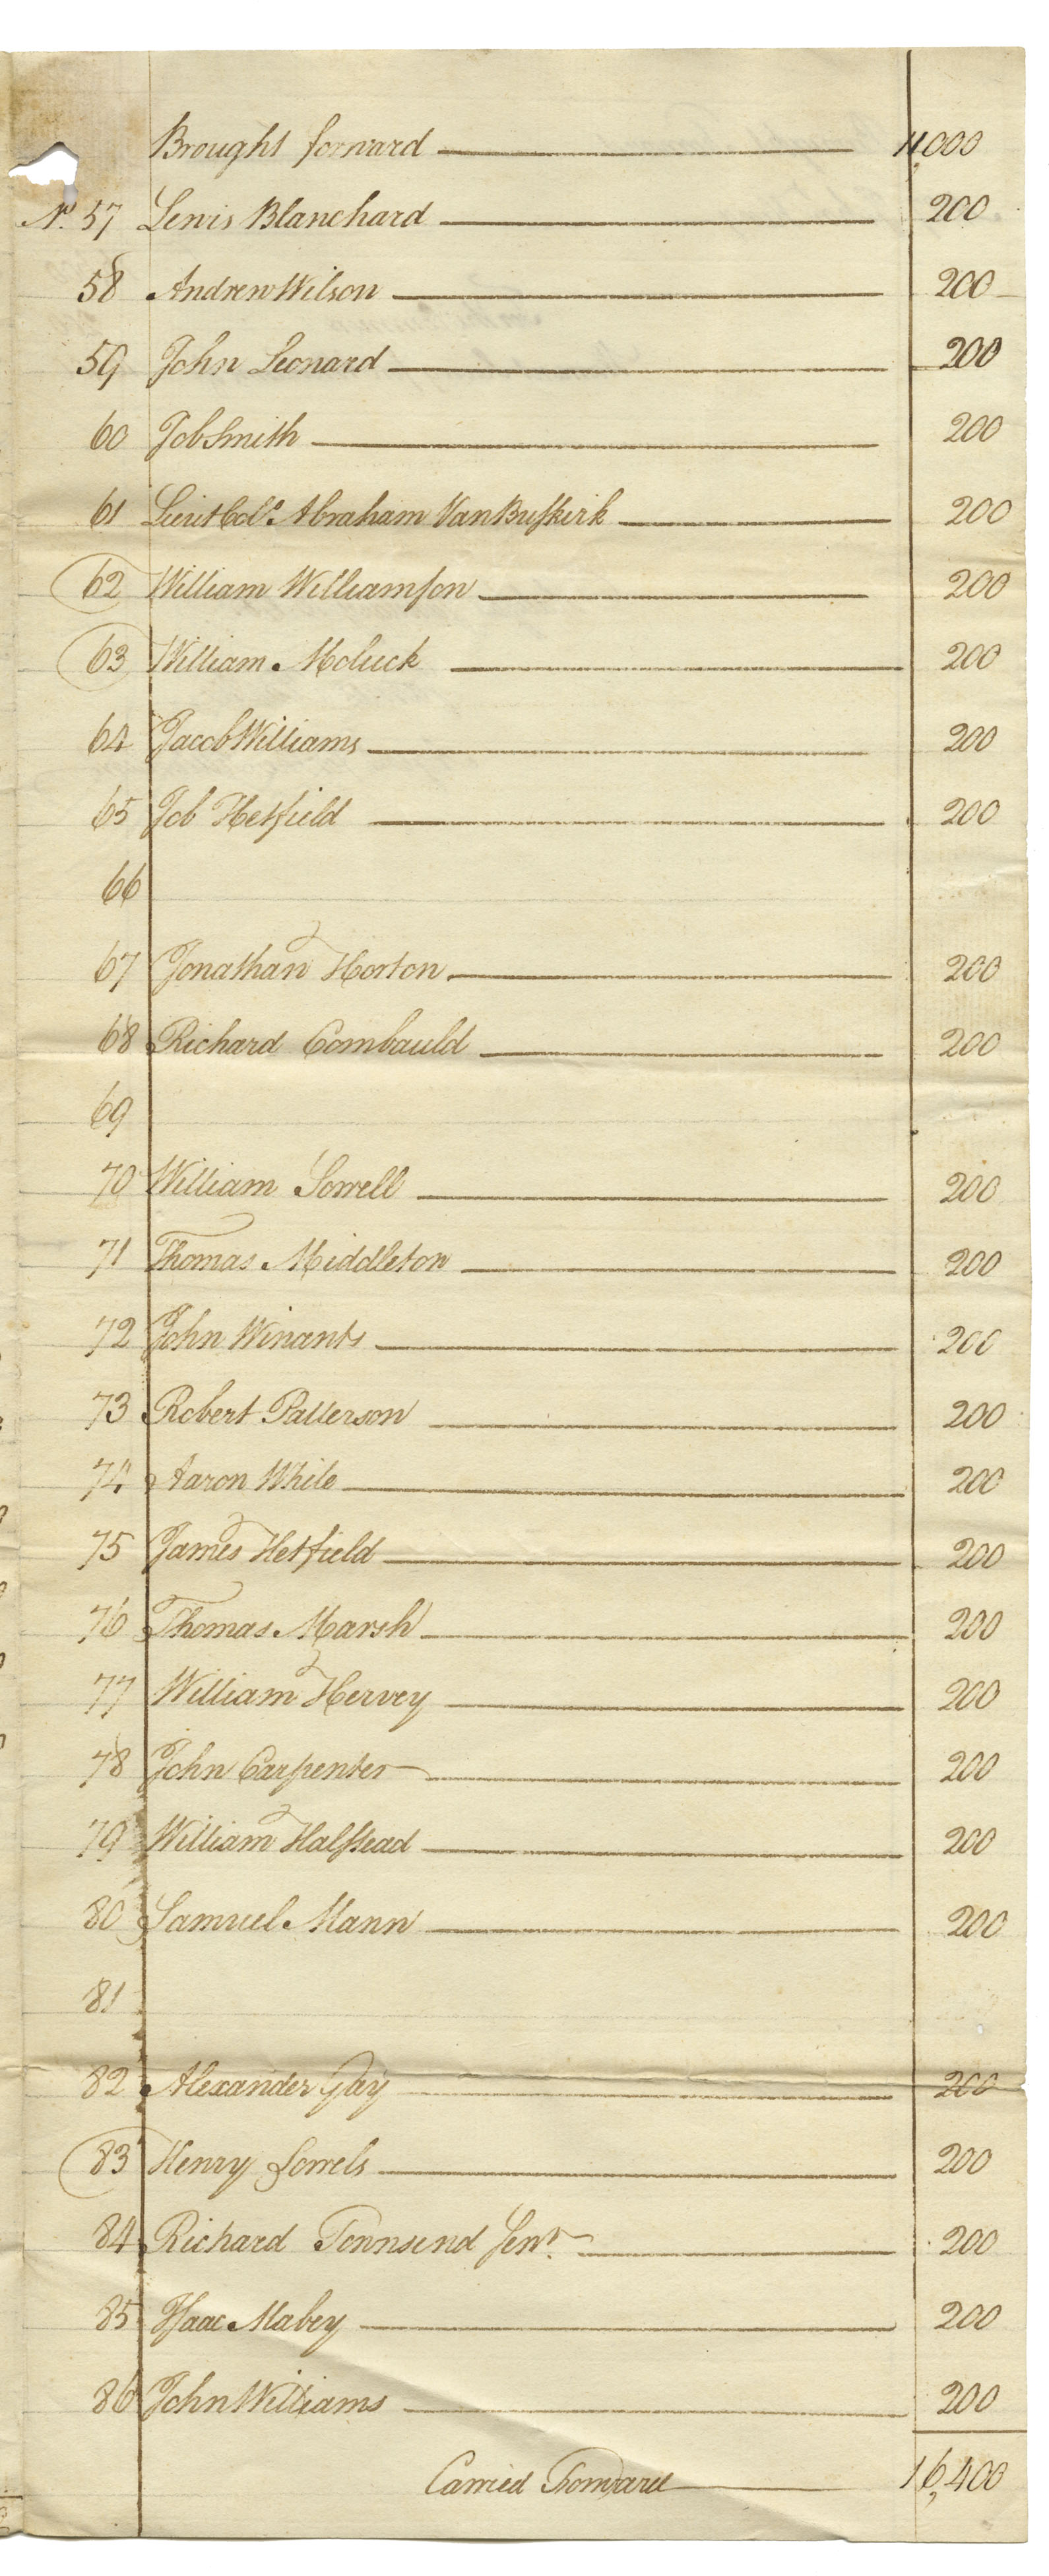 Brought forward 11,000
No. 57 Lewis Blanchard 200
58 Andrew Wilson 200
59 John Leonard 200
60 Job Smith 200
61 Lieut Colo. Abraham Van Buskirk 200
62 William Williamson 200
63 William Moluck 200
64 Jacob Williams 200
65 Job Hetfield 200
66
67 Jonathan Horton 200
68 Richard Combauld 200
69
70 William Sorrell 200
71 Thomas Middleton 200
72 John Winants 200
73 Robert Patterson 200
74 Aaron White 200
75 James Hetfield 200
76 Thomas Marsh 200
77 William Hervey 200
78 John Carpenter 200
79 William Halstead 200
80 Samuel Mann 200
81
82 Alexander Gay 200
83 Henry Sorrels 200
84 Richard Townsend Senr. 200
85 Isaac Mabey 200
86 John Williams 200
Carried Forward 16,400